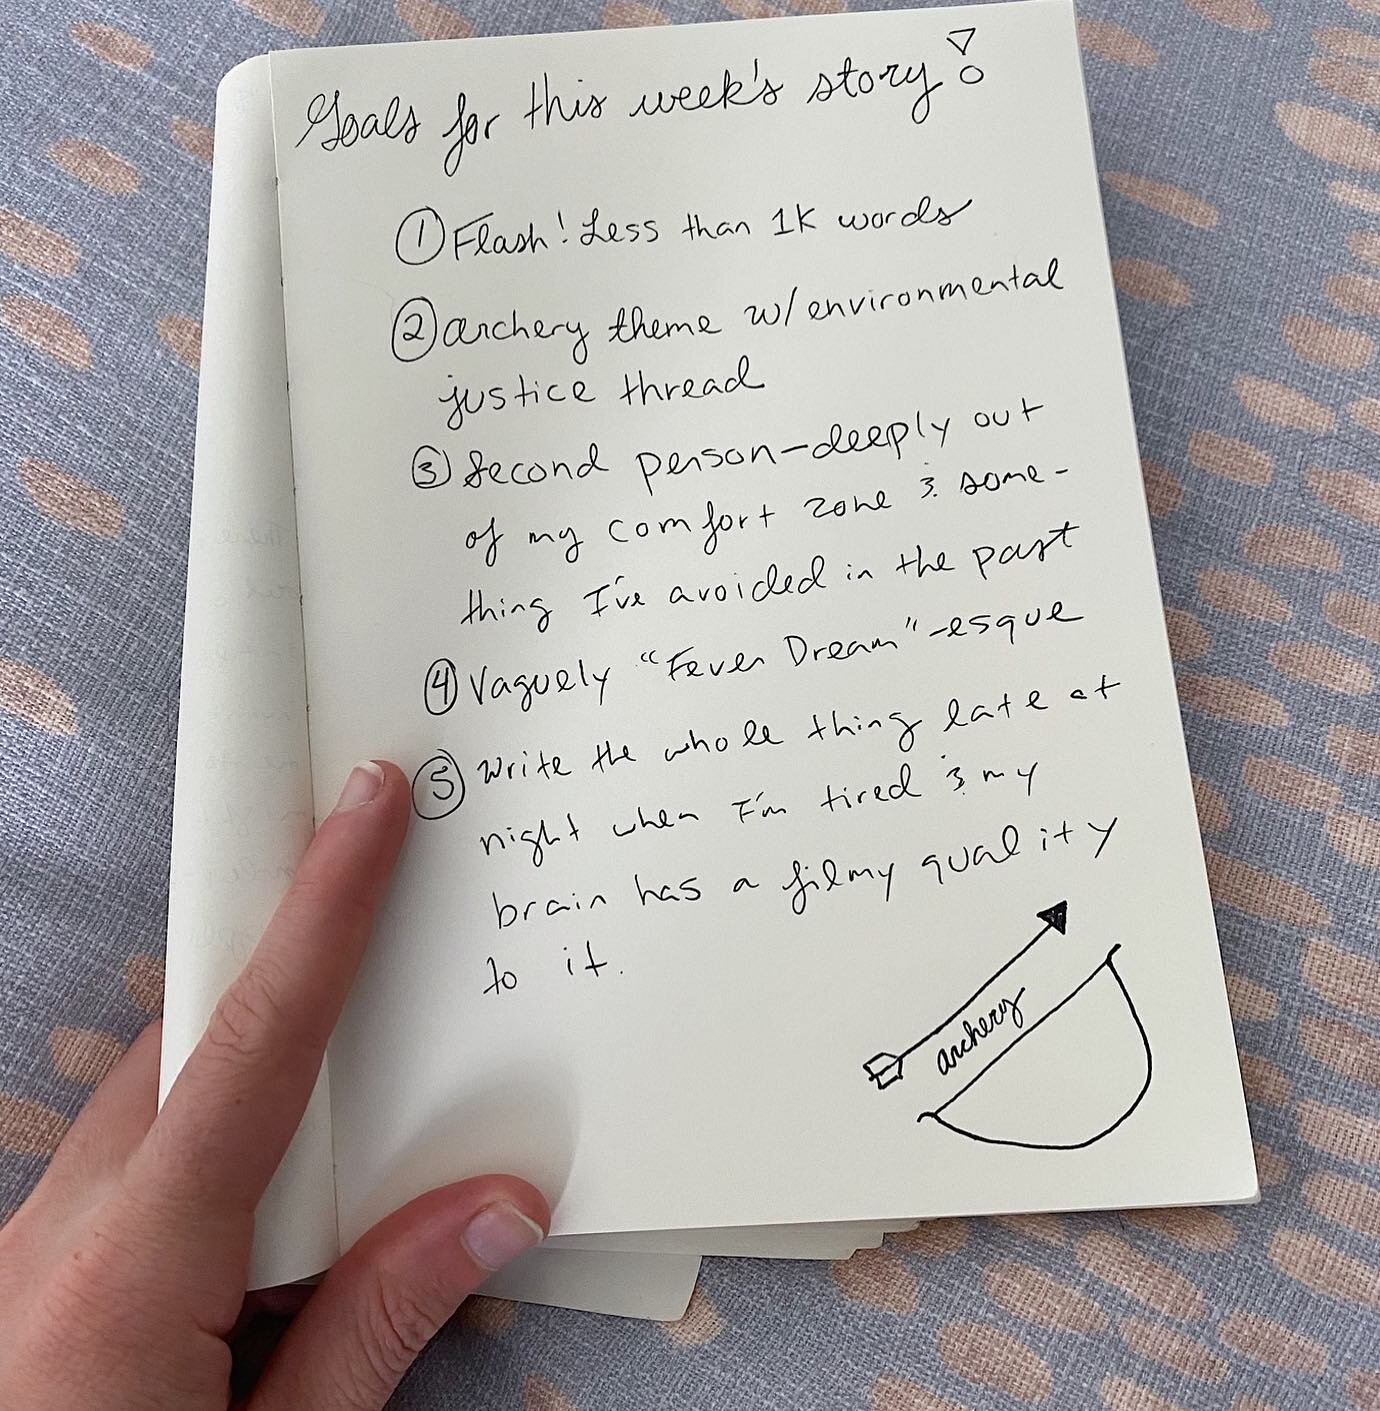 Goals for this week's story!
① Flash! Less than 1K words
② archery theme w/ environmental
justice thread
③ Second person-deeply out
of my comfort zone & some-
thing I've avoided in the past
④ Vaguely "Fever Dream"-esque
⑤ Write the whole thing late at
night when I'm tired & my
brain has a filmy quality
to it.
archery